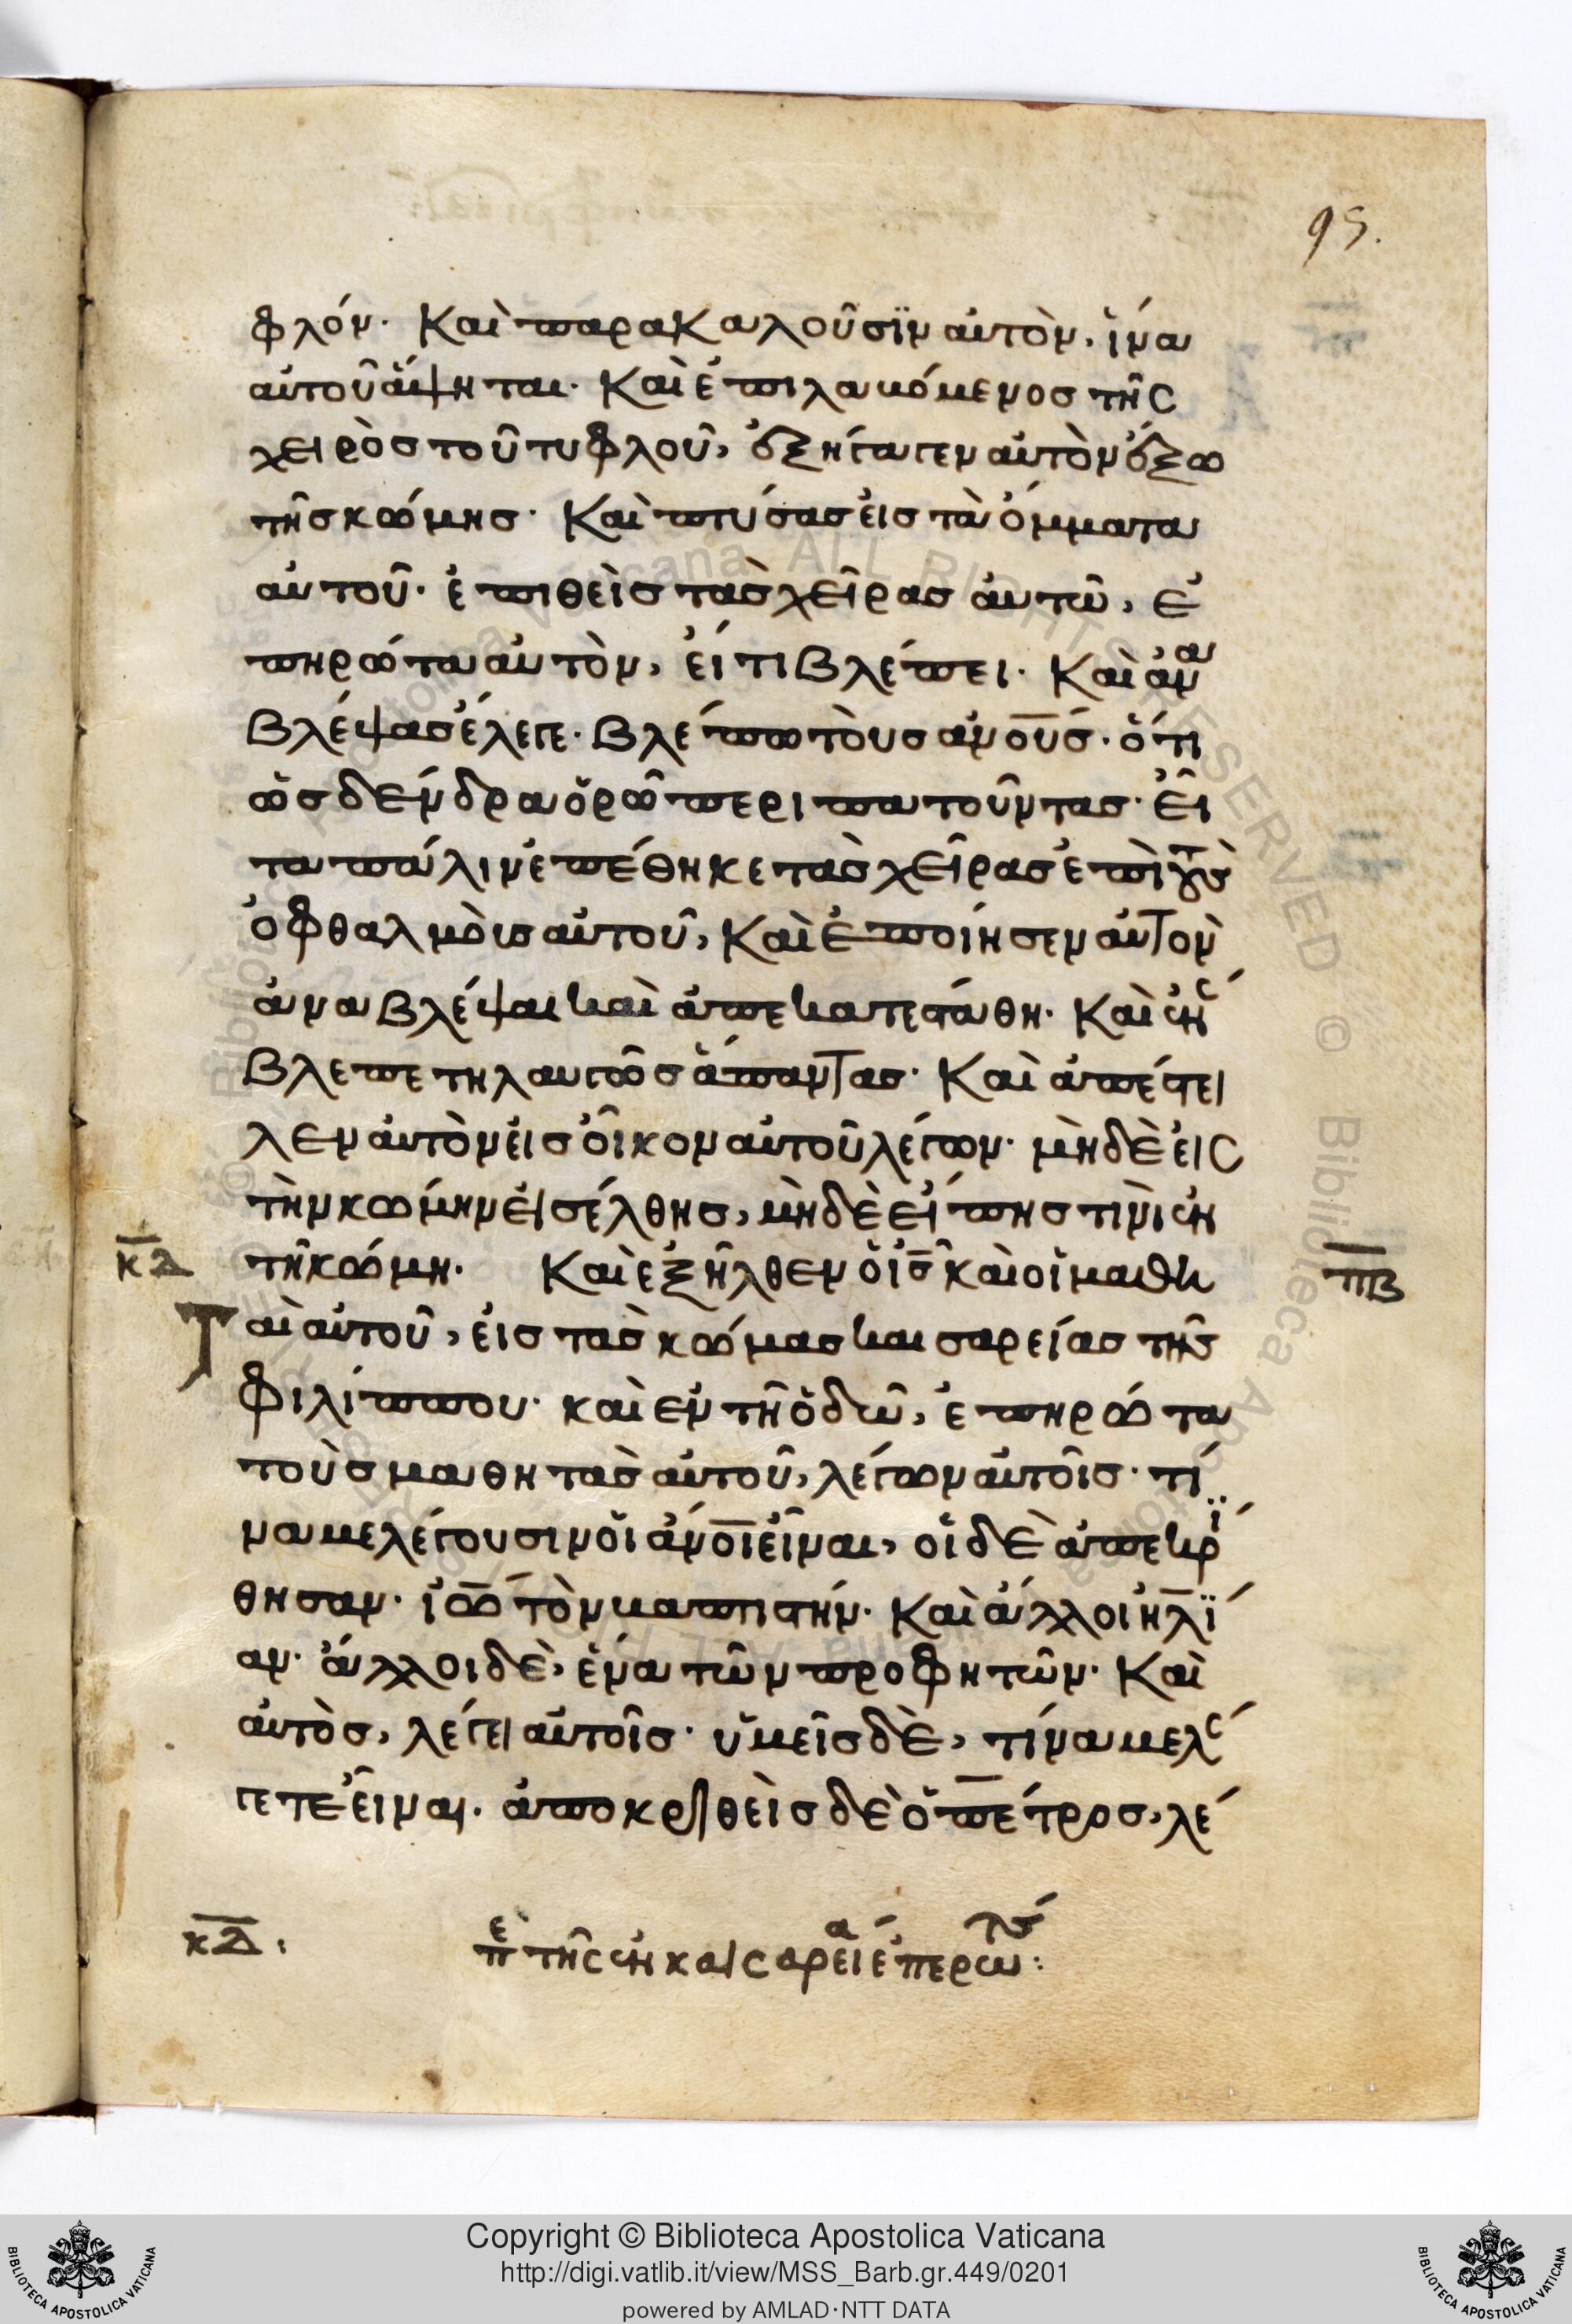 95.
φλόν· Καὶ παρακαλοῦσϊν αὐτὸν, ἵνα
αὐτοῦ ἅψηται· Καὶ ἐπιλαβόμενος τῆς
χειρὸς τοῦ τυφλοῦ, ἐξήγαγεν αὐτὸν ἔξω
τῆς κώμης· Καὶ πτύσας εἰς τὰ ὄμματα
αὐτοῦ· ἐπιθεὶς τὰς χεῖρας αὐτῶ, ἐ
πηρώτα αὐτὸν, εἴ τι βλέπει· Καὶ ἀνα
βλέψας ἔλεγε· βλέπω τοὺς ἀνους· ὅτι
ὡς δένδρα ὁρῶ περιπατοῦντας· εἶ
τα πάλιν ἐπέθηκε τὰς χεῖρας ἐπὶ τοὺς
ὀφθαλμοὺς αὐτοῦ, Καὶ ἐποίησεν αὐτὸν
ἀναβλέψαι καὶ ἀπεκατεστάθη· Καὶ ἐνέ
βλεπε τηλαυγῶς ἅπαντας· Καὶ ἀπέστει
λεν αὐτὸν εἰς οἶκον αὐτοῦ λέγων· μὴδὲ εἰς
τὴν κώμην εἰσέλθης, μὴδὲ εἴπης τινὶ ἐν
κδ τῆ κώμη· Καὶ ἐξῆλθεν ὁ ις καὶ οἱ μαθη πβ
Ταὶ αὐτοῦ, εἰς τὰς κώμας καισαρείας τῆς
φιλίππου· καὶ ἐν τῆ ὁδῶ, ἐπηρώτα
τοὺς μαθητὰς αὐτοῦ, λέγων αὐτοῖς· τί
να με λέγουσιν οἱ ἀνοι εἶναι, οἱ δὲ ἀπεκρί
θησαν· ἰω τὸν βαπτιστήν· Καὶ ἄλλοι ηλί
αν· ἄλλοι δὲ, ἕνα τῶν προφητῶν· Καὶ
αὐτὸς, λέγει αὐτοῖς· ὑμεῖς δὲ, τίνα με λέ
γετε εἶναι· ἀποκριθεὶς δὲ ὁ πέτρος, λέ
κδ: πε τῆς ἐν καισαρεία ἐπερωτς:
Copyright © Biblioteca Apostolica Vaticana
http://digi.vatlib.it/view/MSS_Barb.gr.449/0201
powered by AMLAD·NTT DATA
BIBLIOTECA APOSTOLICA VATICANA
BIBLIOTECA APOSTOLICA VATICANA